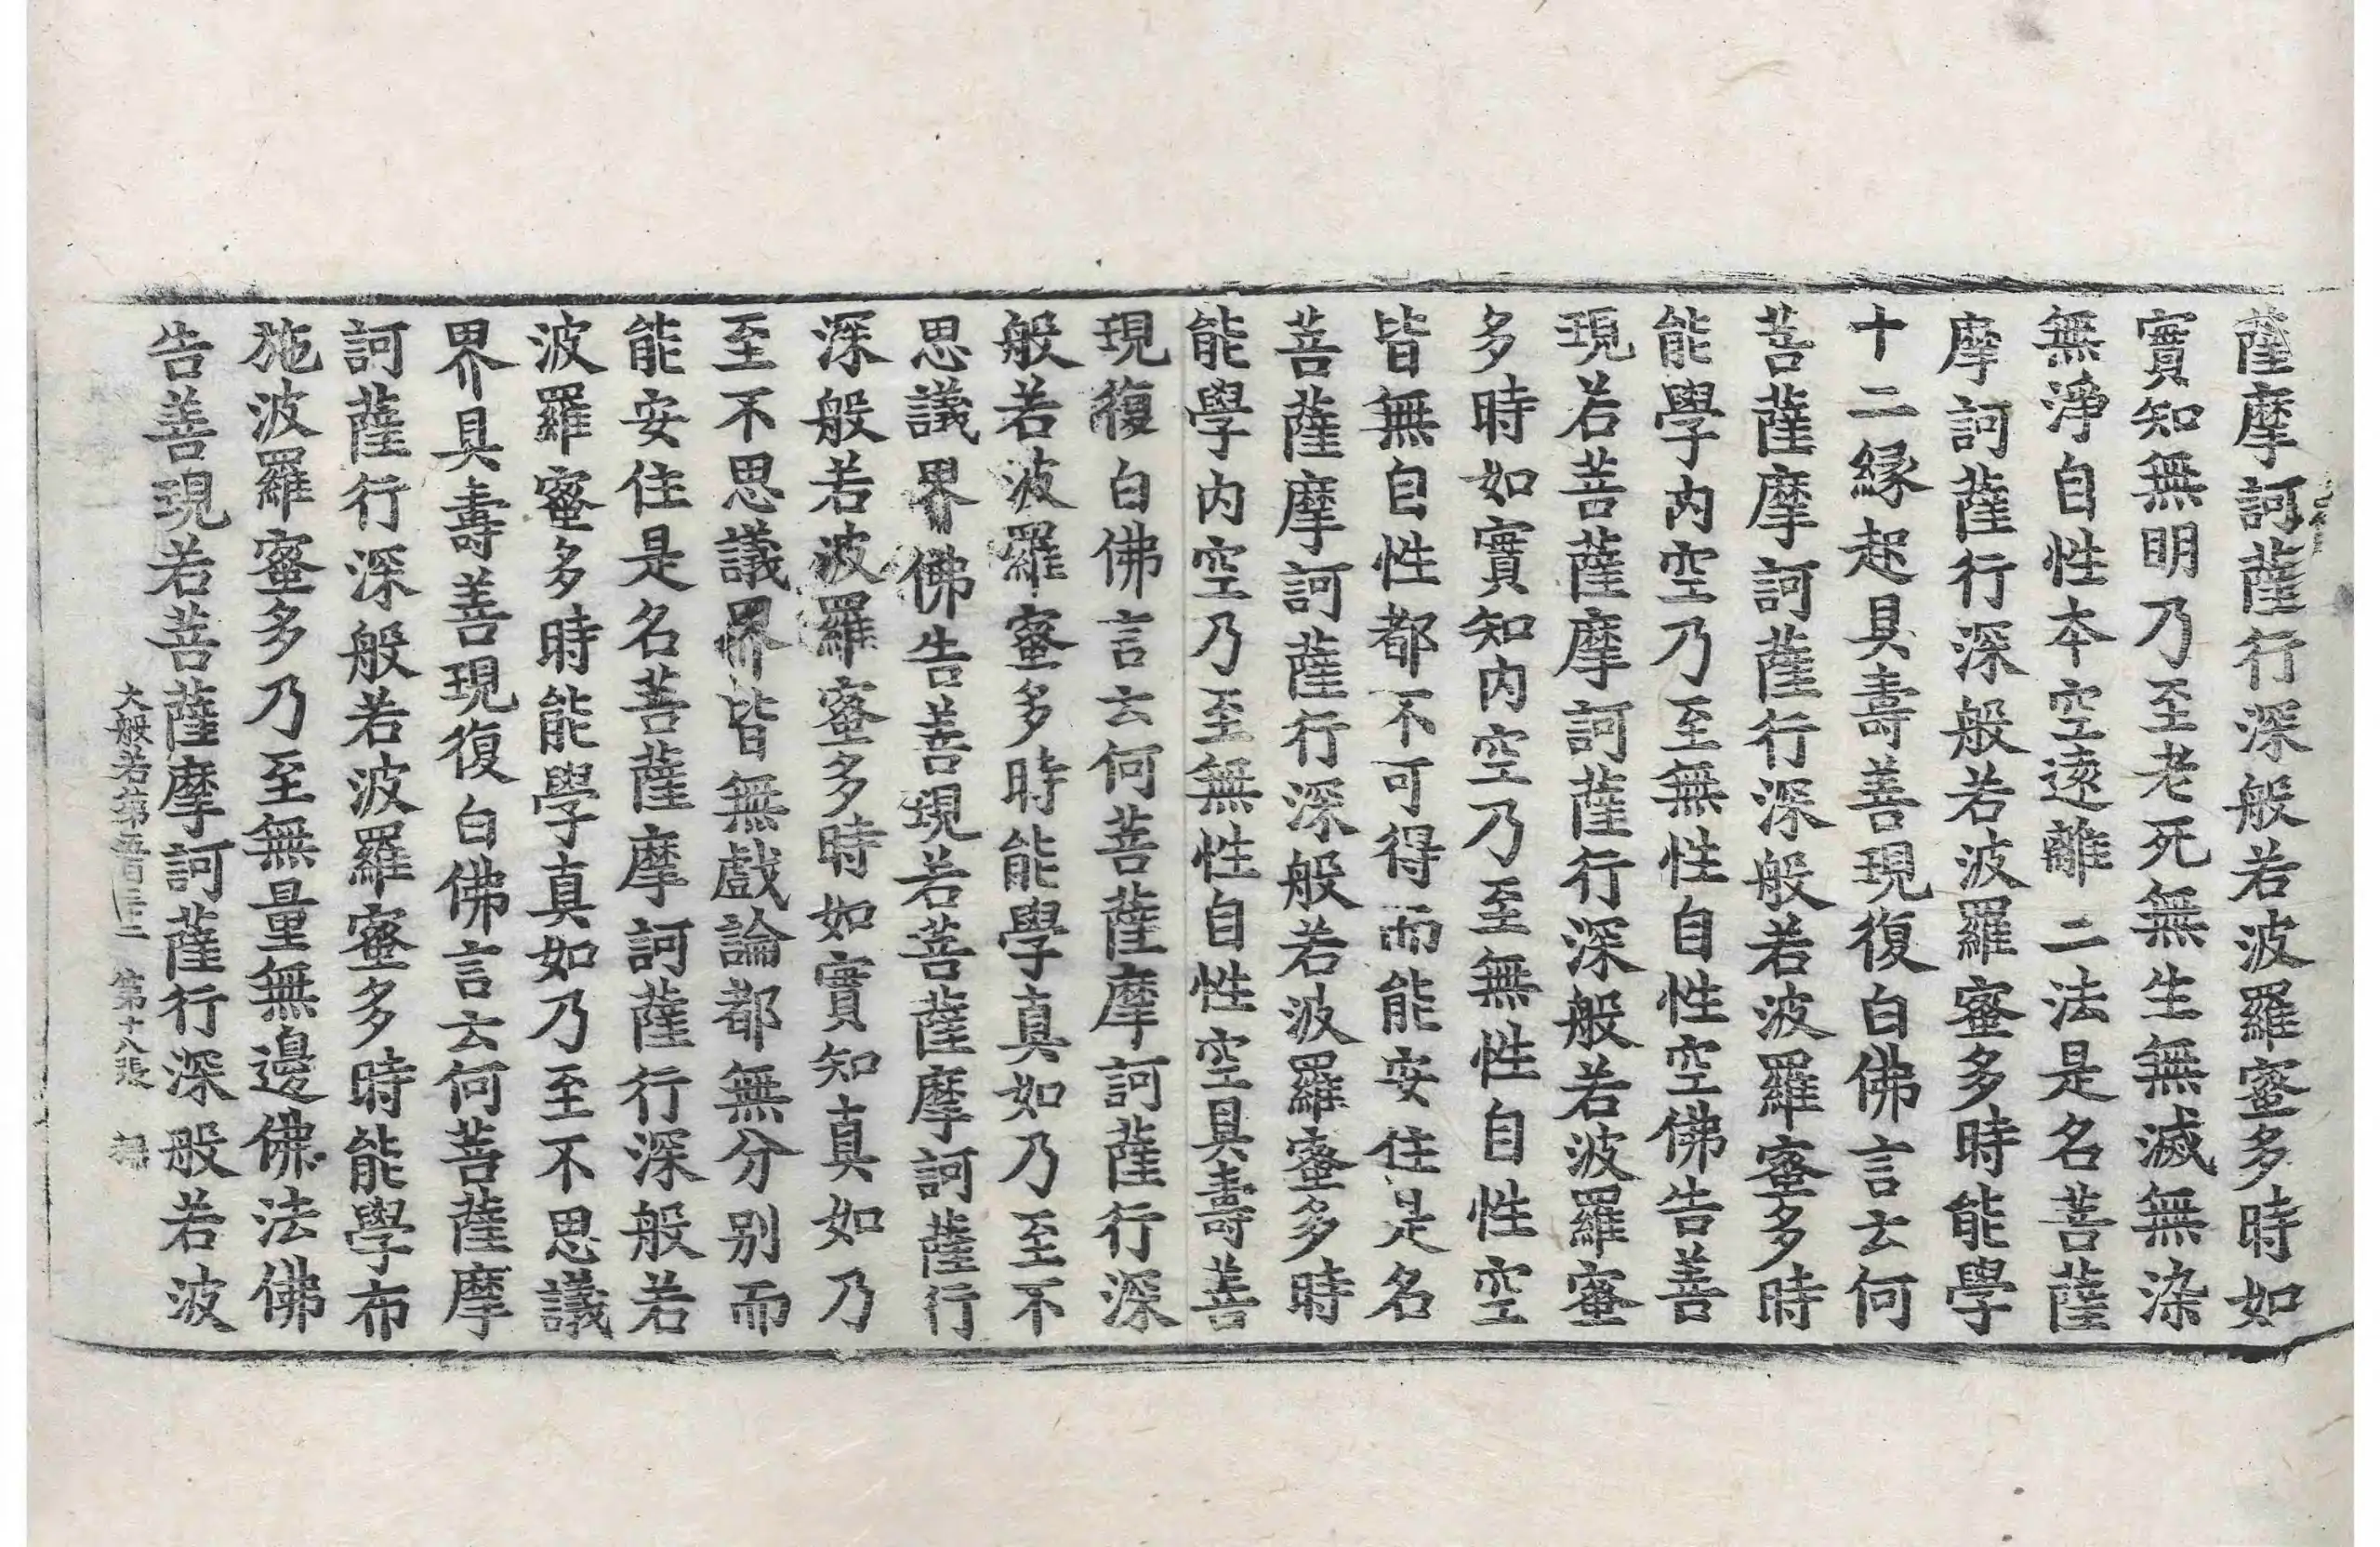 薩摩訶薩行深般若波羅蜜多時如
實知無明乃至老死無生無滅無染
無淨自性本空遠離二法是名菩薩
摩訶薩行深般若波羅蜜多時能學
十二緣起具壽善現復白佛言云何
菩薩摩訶薩行深般若波羅蜜多時
能學內空乃至無性自性空佛告善
現若菩薩摩訶薩行深般若波羅蜜
多時如實知內空乃至無性自性空
皆無自性都不可得而能安住是名
菩薩摩訶薩行深般若波羅蜜多時
能學內空乃至無性自性空具壽善
現復白佛言云何菩薩摩訶薩行深
般若波羅蜜多時能學真如乃至不
思議界佛告善現若菩薩摩訶薩行
深般若波羅蜜多時如實知真如乃
至不思議界皆無戲論都無分別而
能安住是名菩薩摩訶薩行深般若
波羅蜜多時能學真如乃至不思議
界具壽善現復白佛言云何菩薩摩
訶薩行深般若波羅蜜多時能學布
施波羅蜜多乃至無量無邊佛法佛
告善現若菩薩摩訶薩行深般若波
大般若第五百三十二 第十八張